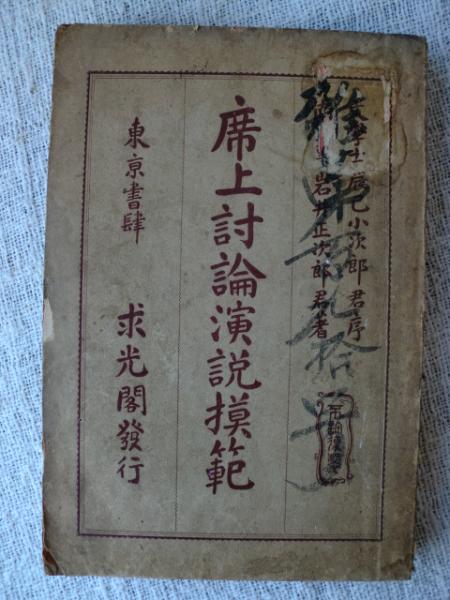 學士辰巳小次郎君序
岩 正次郎君著
席上討論演説摸範
東京書肆 求光閣發行